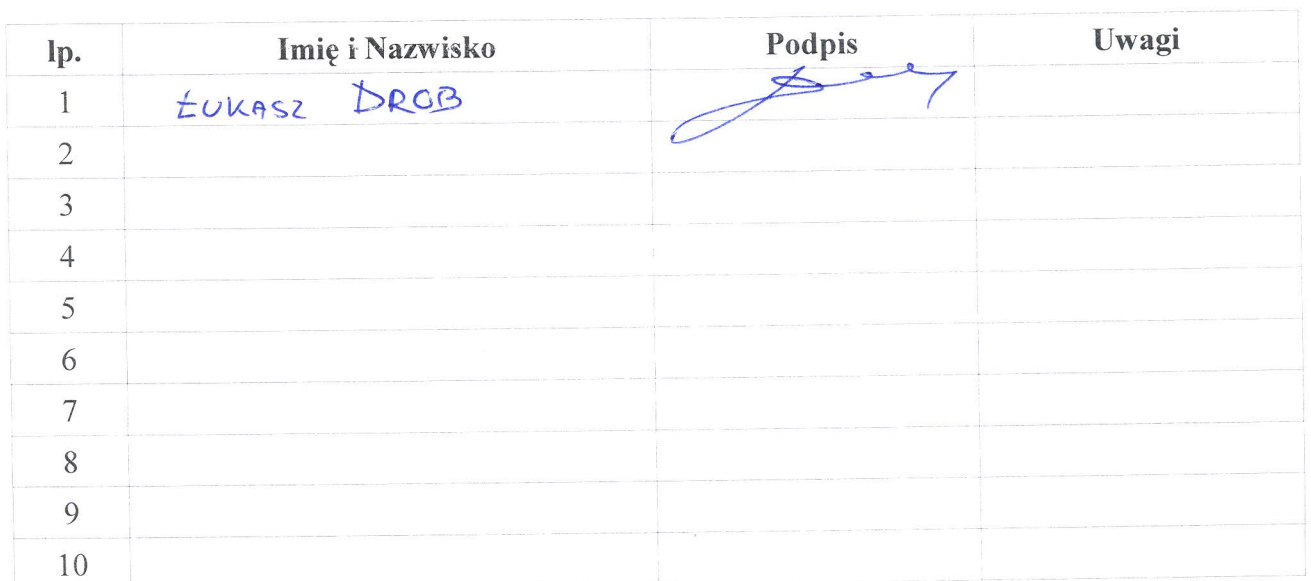 lp. Imię i Nazwisko Podpis Uwagi
1 ŁUKASZ DROB
2
3
4
5
6
7
8
9
10